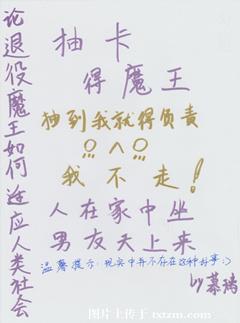 论退役魔王如何适应人类社会
抽卡
得魔王
独到我就得负责
我不走！
人在家中坐
男友天上来
温馨提示:现实中并不存在这种好事:)
by慕璃
图片上传于txtzm.com